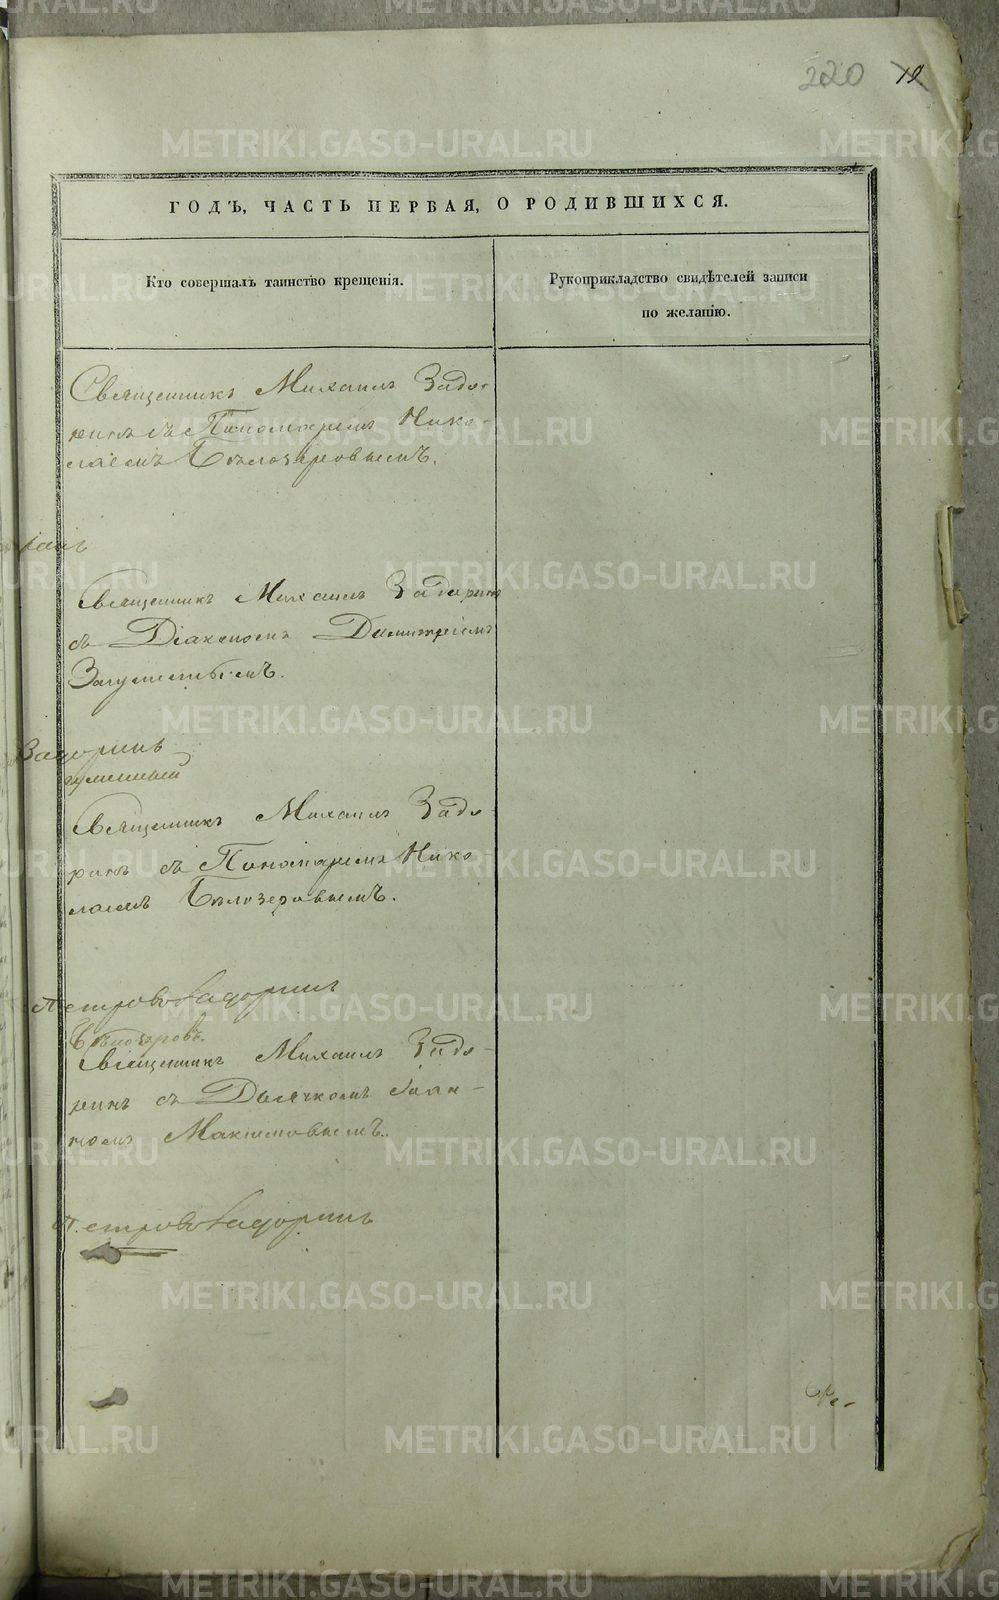 220 19
ГОДЪ, ЧАСТЬ ПЕРВАЯ, О РОДИВШИХСЯ.
Кто совершалъ таинство крещенія.
Рукоприкладство свидѣтелей записи
по желанію.
Священникъ Михаилъ Задо-
ринъ съ Пономаремъ Нико-
лаемъ Бѣлозеровымъ.
Священникъ Михаилъ Задоринъ
съ Діакономъ Димитріемъ
Задоринъ
Священникъ Михаилъ Задо-
ринъ съ Пономаремъ Нико
лаемъ Бѣлозеровымъ.
Петровъ Задоринъ
Бѣлозеровъ.
Священникъ Михаилъ Задо-
ринъ съ Дьячкомъ Іоан-
номъ Максимовымъ.
Петровъ Задоринъ
METRIKI.GASO-URAL.RU